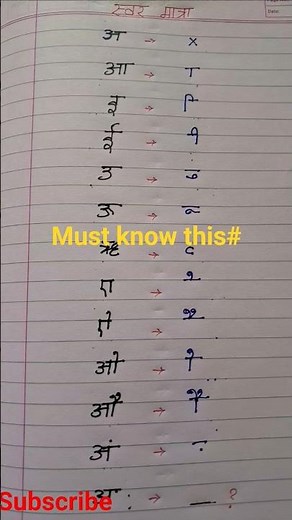 स्वर मात्रा
अ → x
आ → ा
इ → ि
ई → ी
उ → ु
ऊ → ू
Must know this#
ऋ → ृ
ए → े
ऐ → ै
ओ → ो
औ → ौ
अं → ं
Subscribe
अः → __ ?